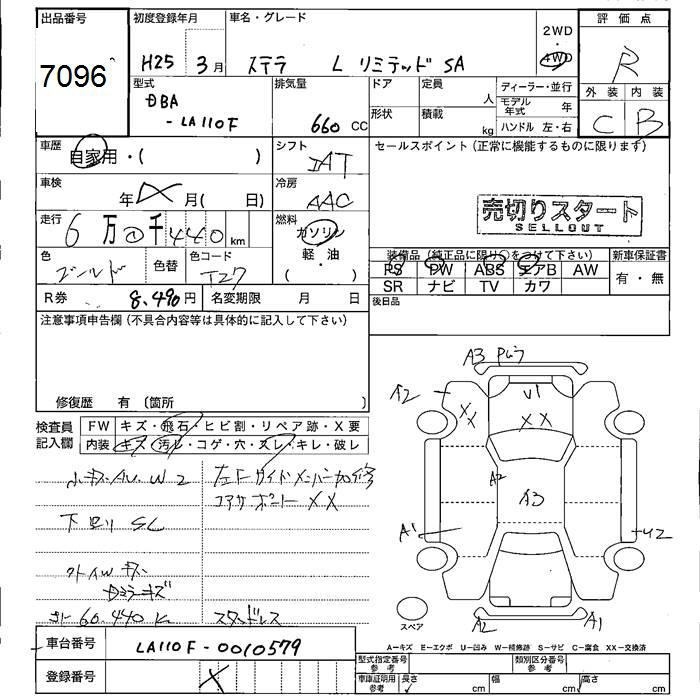 出品番号
7096
初度登録年月
H25 3月
車名・グレード
ステラ L リミテッド SA
2WD
4WD
評価点
R
外装 内装
C B
型式
DBA
-LA110F
排気量
660 CC
ドア
形状
定員
人
積載
kg
ディーラー・並行
モデル年式 年
ハンドル 左・右
車歴
自家用・( )
シフト
IAT
セールスポイント(正常に機能するものに限ります)
売切りスタート
SELLOUT
車検
年 月( 日)
冷房
AAC
走行
6万0千440km
燃料
ガソリン
軽・油
( )
色
ゴールド
色替
色コード
T27
装備品(純正品に限り○をつけて下さい)
PS PW ABS エアB AW
SR ナビ TV カワ
新車保証書
有・無
後日品
R券 8,490円
名変期限 月 日
注意事項申告欄(不具合内容等は具体的に記入して下さい)
修復歴 有 〔箇所 〕
検査員記入欄
FW キズ・飛石・ヒビ割・リペア跡・X要
内装 キズ・汚レ・コゲ・穴・スレ・キレ・破レ
小キズ・AU・W2
下回り SC
60,440K
左F サイドメンバー加修
コアサポート XX
スタッドレス
A3
A2
V1
XX
XX
A2
A3
A1
U2
A2
A1
スペア
A-キズ E-エクボ U-凹み W-補修跡 S-サビ C-腐食 XX-交換済
車台番号
LA110F-0010579
登録番号
X
型式指定番号
参考
類別区分番号
参考
車庫証明用
参考
長さ cm
幅 cm
高さ cm